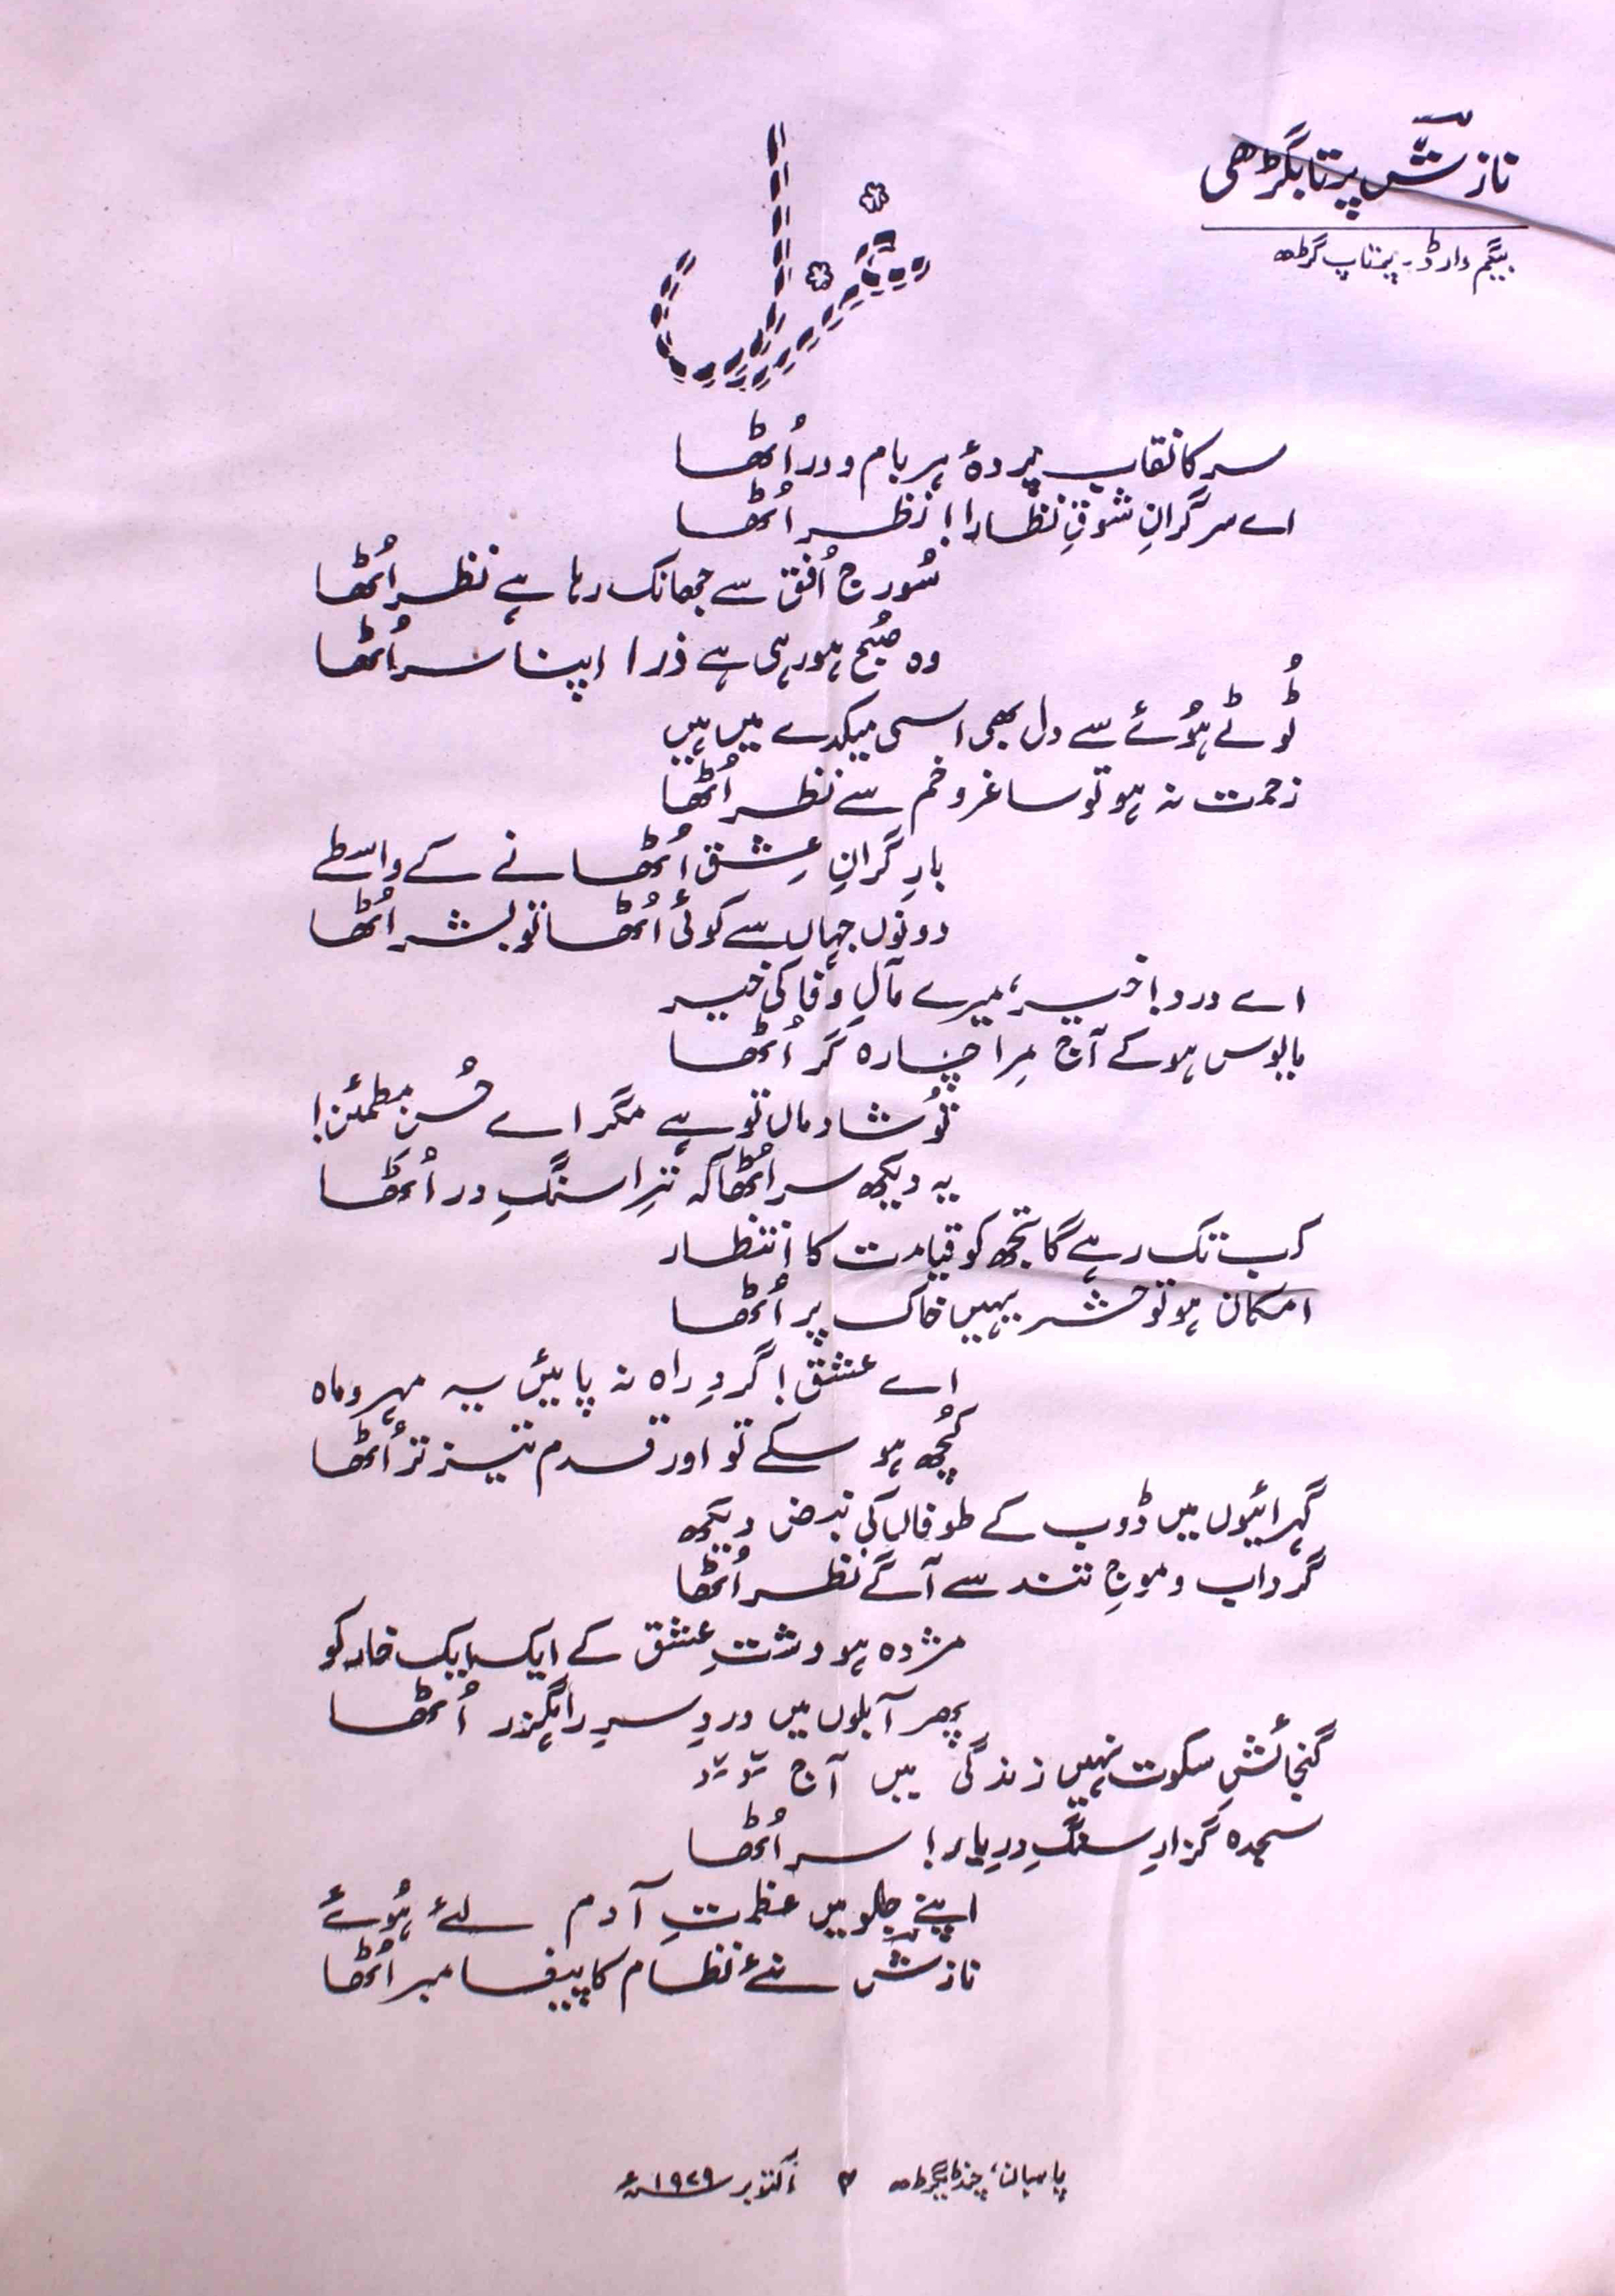 نازشؔ پرتابگڑھی
بیگم وارڈ۔ پرتاپ گڑھ
غزل
سرکا نقاب پردۂ ہر بام و در اُٹھا
اے سرگرانِ شوقِ نظارا! نظر اُٹھا
سُورج اُفق سے جھانک رہا ہے نظر اُٹھا
وہ صُبح ہو رہی ہے ذرا اپنا سر اُٹھا
ٹُوٹے ہُوئے سے دل بھی اسی میکدے میں ہیں
زحمت نہ ہو تو ساغر و خم سے نظر اُٹھا
بارِ گرانِ عِشق اُٹھانے کے واسطے
دونوں جہاں سے کوئی اُٹھا تو بشر اُٹھا
اے درد! خیر، میرے مآلِ وفا کی خیر
مایوس ہو کے آج مِرا چارہ گر اُٹھا
تُو شادماں تو ہے مگر اے حُسنِ مطمئن!
یہ دیکھ سر اُٹھا کہ تِرا سنگِ در اُٹھا
کب تک رہے گا تجھ کو قیامت کا انتظار
امکان ہو تو حشر یہیں خاک پر اُٹھا
اے عشق! گردِ راہ نہ پائیں یہ مہر و ماہ
کُچھ ہو سکے تو اور قدم تیز تر اُٹھا
گہرائیوں میں ڈوب کے طوفاں کی نبض دیکھ
گرداب و موجِ تند سے آگے نظر اُٹھا
مژدہ ہو دشتِ عِشق کے ایک ایک خار کو
پھر آبلوں میں دردِ سرِ راہگذر اُٹھا
گنجائشِ سکوت نہیں زندگی میں آج
سجدہ گزارِ سنگِ درِ یار! سر اُٹھا
اپنے جلو میں عظمتِ آدم لئے ہُوئے
نازشؔ نئے نظام کا پیغامبر اُٹھا
پاسبان، چنڈیگڑھ ۳ اکتوبر ۱۹۷۹ء